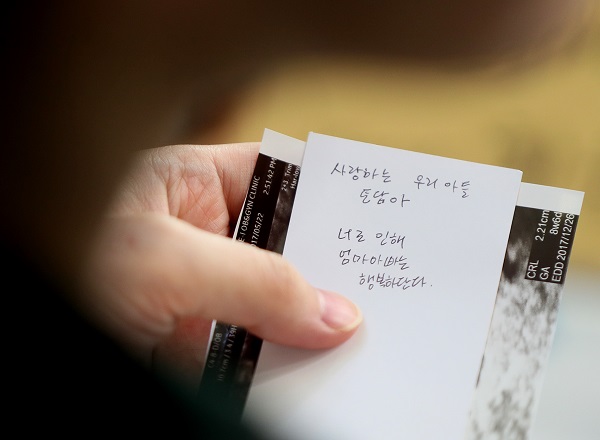 사랑하는 우리 아들
튼담아
너로 인해
엄마아빠는
행복하단다.
OB&GYN CLINIC
2017/05/22 2:51:42 PM
CRL 2.21cm
GA 8w6d
EDD 2017/12/26